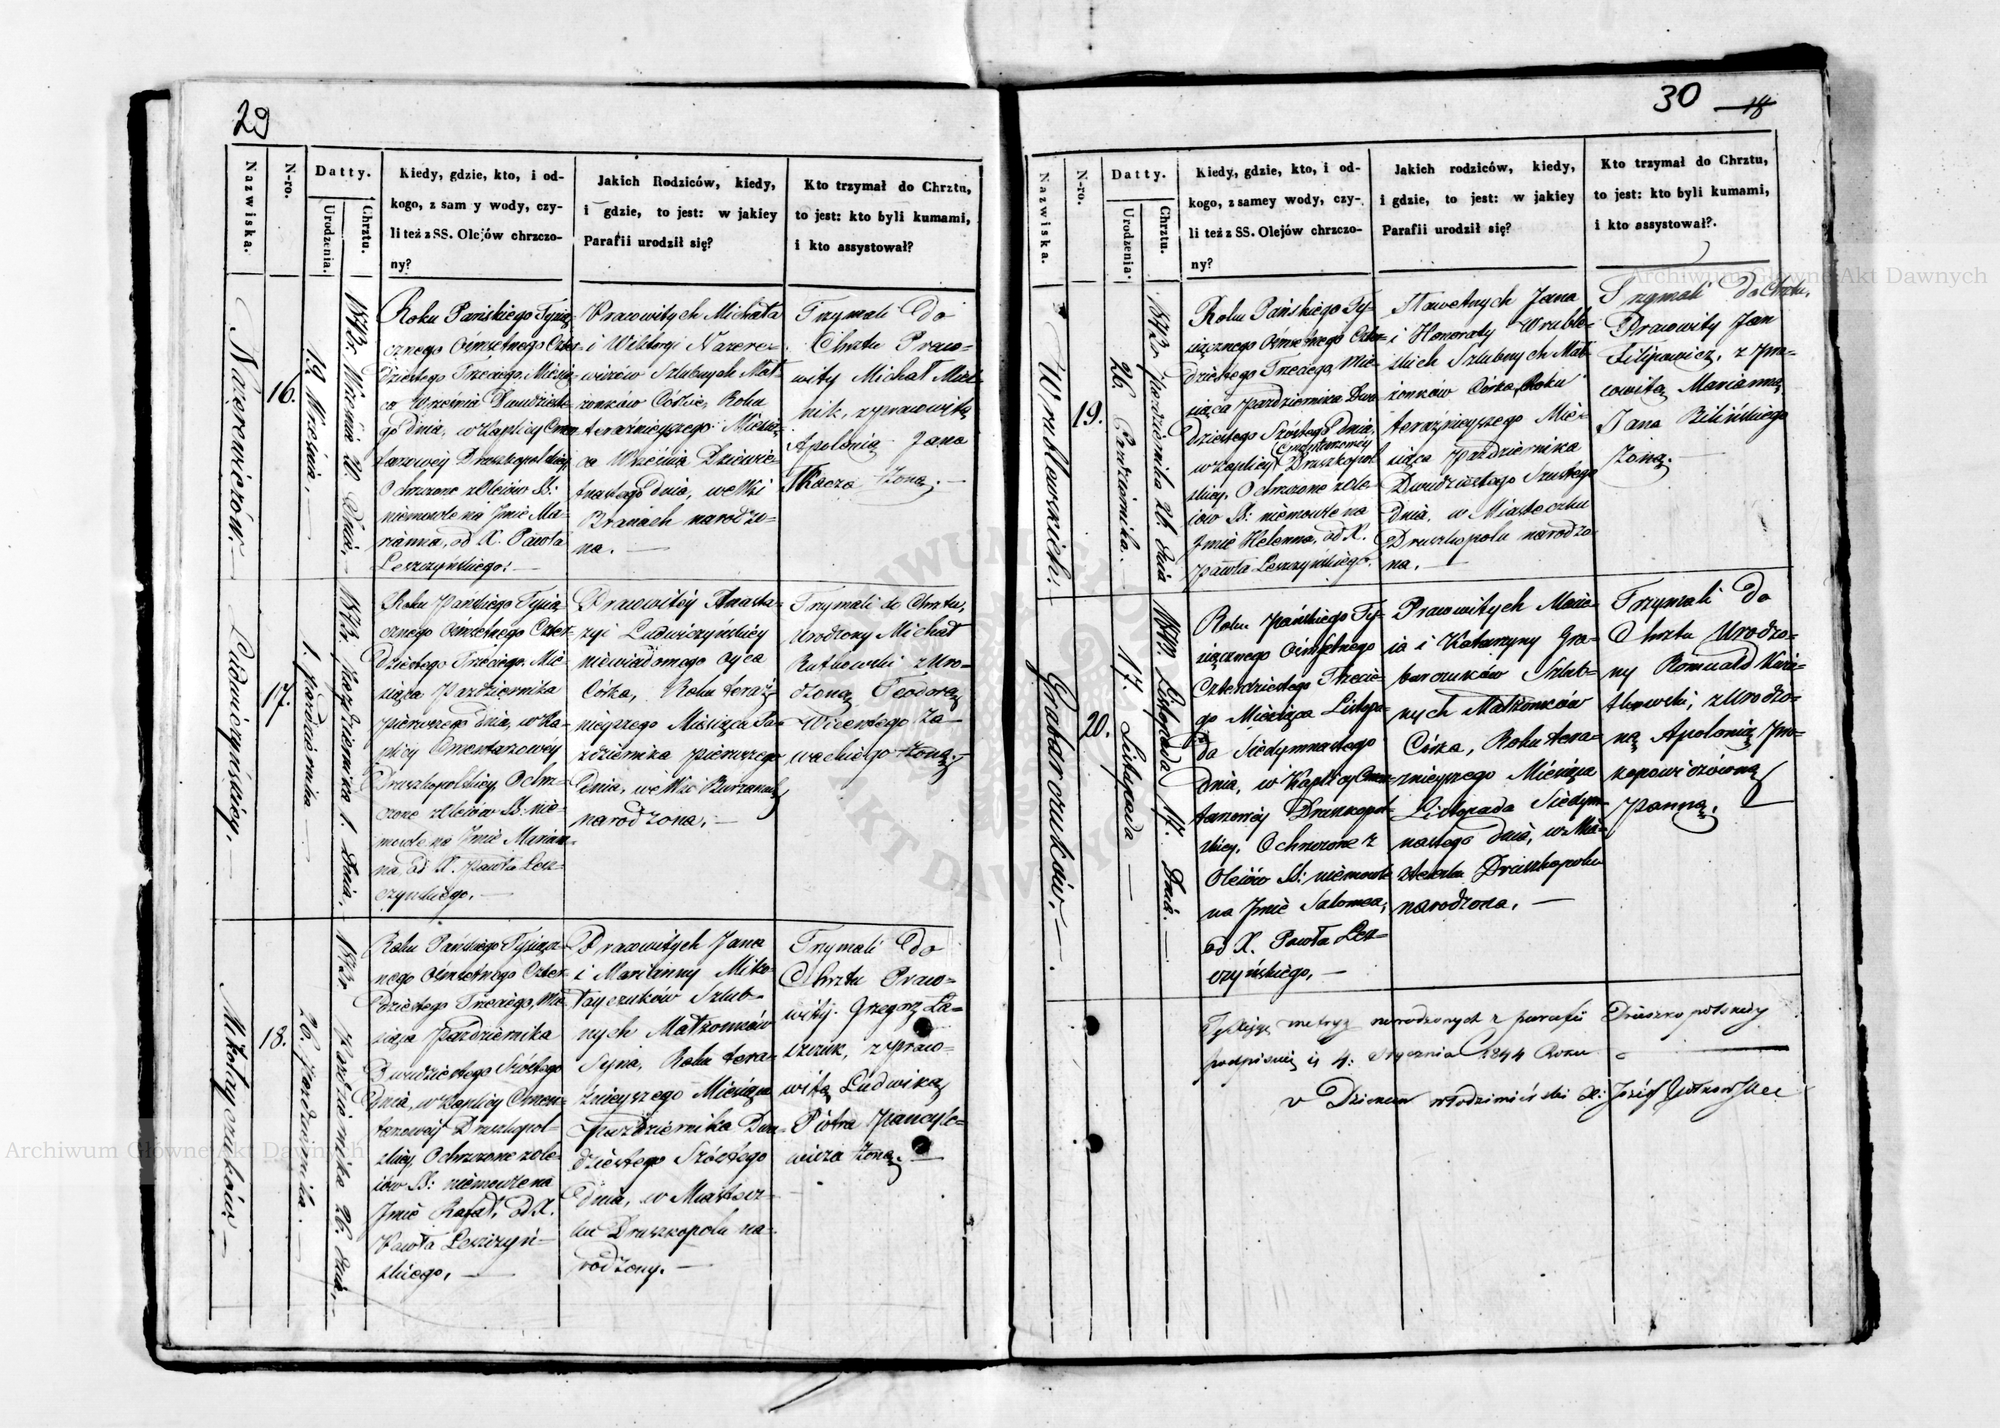 29
Nazwiska.
N-ro.
Datty.
Urodzenia.
Chrztu.
Kiedy, gdzie, kto, i od-
kogo, z sam y wody, czy-
li też z SS. Olejów chrzczo-
ny?
Jakich Rodziców, kiedy,
i gdzie, to jest: w jakiey
Parafii urodził się?
Kto trzymał do Chrztu,
to jest: kto byli kumami,
i kto assystował?
Nazerewiczów. —
16.
19 Września, —
1843r. Września 20. Dnia, —
Roku Pańskiego Tysią-
cznego Ośmsetnego Czter-
dziestego Trzeciego, Miesią-
ca Września Dwudzieste-
go dnia, w Kaplicy Cmen-
tarzowey Druszkopolskiey
Ochrzczone z Olejów SS:
niemowle na Jmie Ma-
rianna, od X. Pawła
Leszczyńskiego: —
Pracowitych Michała
i Wiktoryi Nazere-
wiczów Szlubnych Mał-
żonków Córka, Roku
teraźnieyszego Miesią-
ca Września Dziewię-
tnastego dnia, we Wsi
Branach narodzo-
na. —
Trzymali do
Chrztu Praco-
wity Michał Miel-
nik, z pracowitą
Apolonią Jana
Tkacza Żoną. —
Ludwiczyńskiey, —
17.
1. Pazdziernika —
1843r. Pazdziernika 1. Dnia, —
Roku Pańskiego Tysią-
cznego Ośmsetnego Czter-
dziestego Trzeciego, Mie-
siąca Pazdziernika
pierwszego dnia, w Ka-
plicy Cmentarzowéy
Druszkopolskiey, Ochrz-
czone z Olejów SS: nie-
mowle na Jmie Marian-
na, od X. Pawła Lesz-
czyńskiego. —
Pracowitéy Anasta-
zyi Ludwiczyńskiéy
niewiadomego oyca
Córka, Roku teraź-
nieyszego Miesiąca Pa-
zdziernika pierwszego
Dnia, we Wsi
narodzona, —
Trzymali do Chrztu,
Urodzony Michał
Rutkowski z Uro-
dzoną Teodorą
Wicentego Za-
wackiego żoną. —
Mikołayczuków —
18.
26. Pazdziernika. —
1843r. Pazdziernika 26. Dnia, —
Roku Pańskiego Tysiącz-
nego Ośmsetnego Czter-
dziestego Trzeciego, Mie-
siąca Pazdziernika
Dwudziestego Szóstego
dnia, w Kaplicy Cmen-
tarzowéy Druszkopol-
skiey, Ochrzczone z Ole-
iów SS: niemowle na
Jmie Rafał, od X.
Pawła Leszczyń-
skiego. —
Pracowitych Jana
i Marianny Miko-
łayczuków Szlub-
nych Małżonków
Syna, Roku tera-
źnieyszego Miesiąca
Pazdziernika Dwu-
dziestego Szóstego
dnia, w Miastecz-
ku Druszkopolu na-
rodzony. —
Trzymali do
Chrztu Praco-
wity Grzegorz Ła-
szczuk, z praco-
witą Ludwiką
Piotra
żoną. —
30 18
Nazwiska.
N-ro.
Datty.
Urodzenia.
Chrztu.
Kiedy, gdzie, kto, i od-
kogo, z samey wody, czy-
li też z SS. Olejów chrzczo-
ny?
Jakich rodziców, kiedy,
i gdzie, to jest: w jakiey
Parafii urodził się?
Kto trzymał do Chrztu,
to jest: kto byli kumami,
i kto assystował?
Wrublewskich. —
19.
26. Pazdziernika. —
1843r. Pazdziernika 26. Dnia
Roku Pańskiego Ty-
siącznego Ośmsetnego Czter-
dziestego Trzeciego, Mie-
siąca Pazdziernika Dwu-
dziestego Szóstego Dnia,
w Kaplicy Cmentarzowéy Druszkopol-
skiey, Ochrzczone z Ole-
iów SS: niemowle na
Jmie Helenna, od X.
Pawła Leszczyńskiego.
Sławetnych Jana
i Honoraty Wruble-
skich Szlubnych Mał-
żonków Córka, Roku
teraźnieyszego Mie-
siąca Pazdziernika
Dwudziestego Szustego
dnia, w Miasteczku
Druszkopolu narodzo-
na. —
Trzymali do Chrztu,
Pracowity Jan
Filipowicz, z pra-
cowitą Marianną
Jana Bilińskiego
żoną. —
Grabarczuków. —
20.
17. Listopada —
1843r. Listopada 17. Dnia. —
Roku Pańskiego Ty-
siącznego Ośmsetnego
Czterdziestego Trzecie-
go Miesiąca Listopa-
da Siedymnastego
dnia, w Kaplicy Cmen-
tarzowéy Druszkopol-
skiey, Ochrzczone z
Oleiów SS: niemowle
na Jmie Salomea,
od X. Pawła Lesz-
czyńskiego, —
Pracowitych Macie-
ia i Katarzyny Gra-
barczuków Szlub-
nych Małżonków
Córka, Roku tera-
znieyszego Miesiąca
Listopada Siedym-
nastego dnia, w Mia-
steczku Druszkopolu
narodzona. —
Trzymali do
Chrztu Urodzo-
ny Romuald
z Urodzo-
ną Apolonią Pro-
kopowiczówną
Panną. —
metryg narodzonych z parafii Druszkopolskiéy
4. Stycznia 1844 Roku —
Dziekan Włodzimirski X: Józéf
Archiwum Główne Akt Dawnych
Archiwum Główne Akt Dawnych
ARCHIWUM GŁÓWNE AKT DAWNYCH